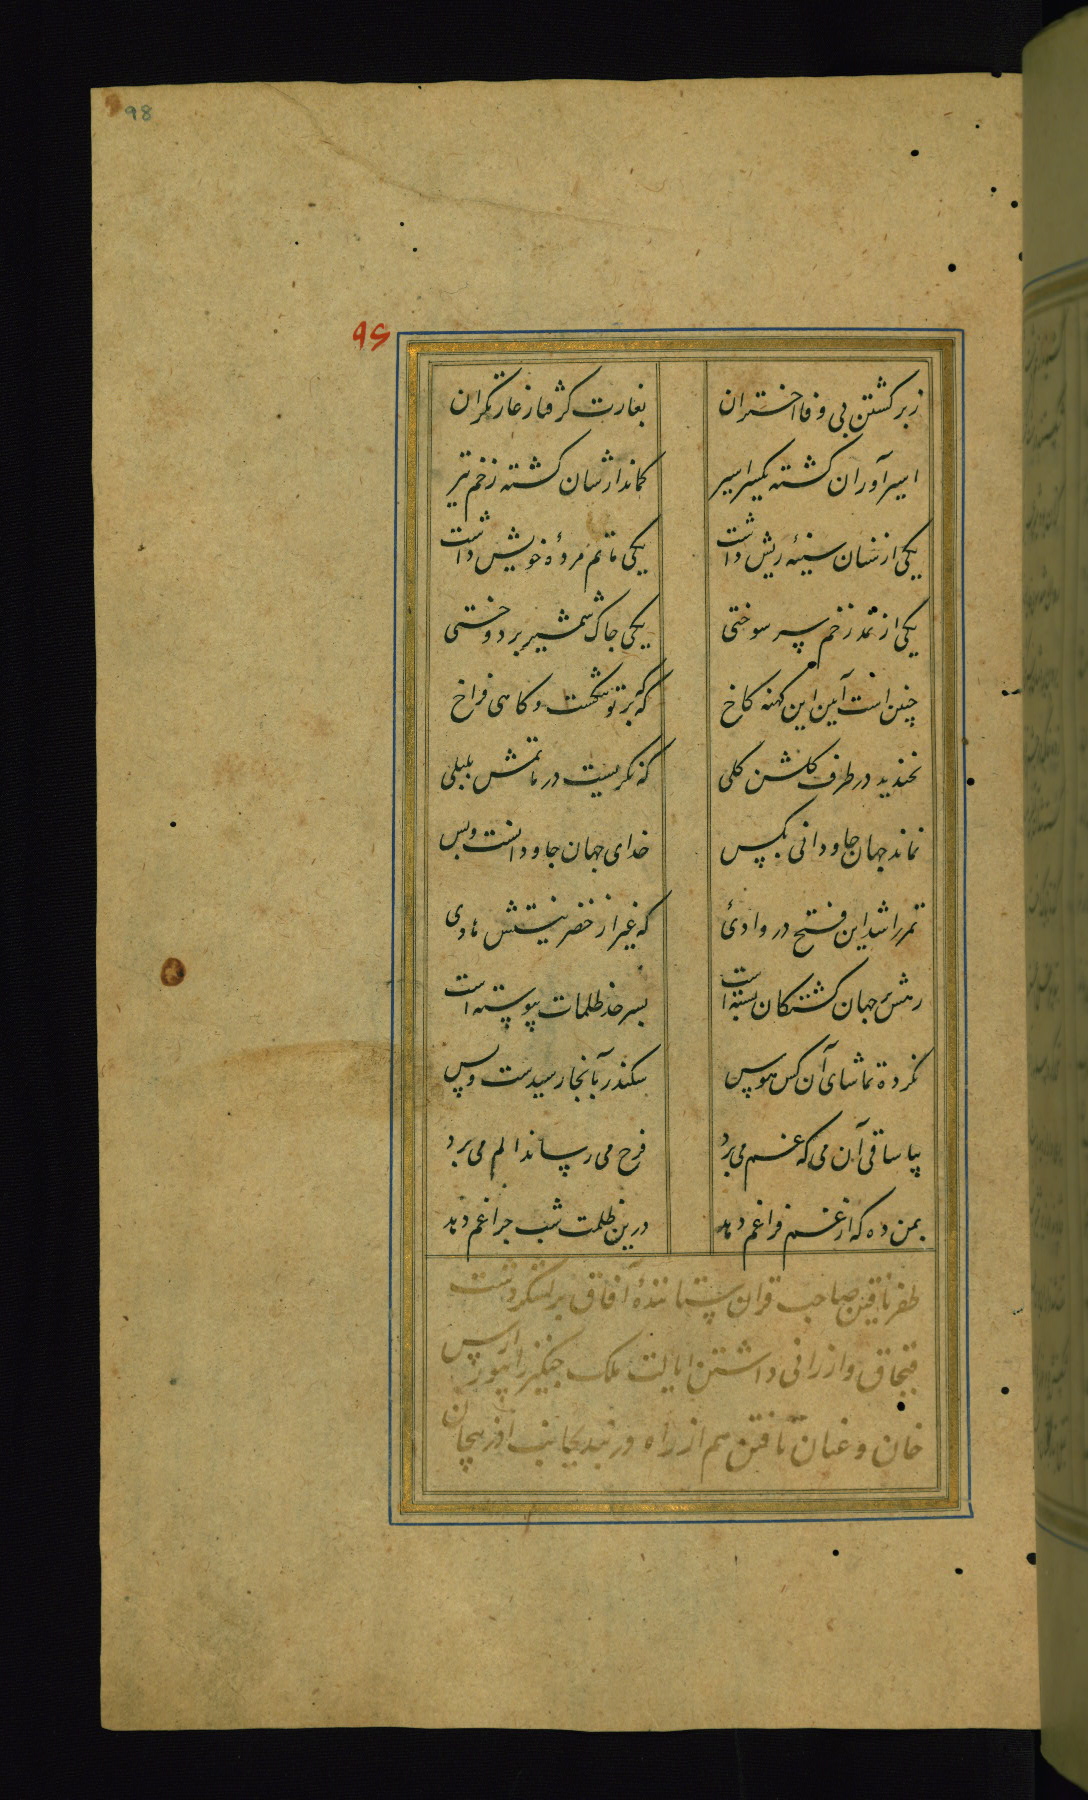 98
۹۶
ز برگشتن بی وفا اختران بغارت گرفتار غارتگران
اسیر آوران گشته یکسر اسیر کماندارشان کشته زخم تیر
یکی از نشان سینه ریش داشت یکی ماتم مردهٔ خویش داشت
یکی از نمد زخم سر سوختی یکی چاک شمشیر بر دوختی
چنین است آیین این کهنه کاخ که بر تو شکست و کاهی فراخ
نخندید در طرف گلشن گلی که نگریست در ماتمش بلبلی
نماند جهان جاودانی بکس خدای جهان جاودانست و بس
تمر را شد این فتح در وادئی که غیر از خضر نیستش هادی
رهش بر جهان گشتگان بسته است بسرحد ظلمات پیوسته است
نکرده تماشای آن کس هوس سکندر بآنجا رسیدست و بس
بیا ساقی آن می که غم می برد فرح می رساند الم می برد
بمن ده که از غم فراغم دهد درین ظلمت شب چراغم دهد
ظفر یافتن صاحب قران ستانندهٔ آفاق بر لشکر دشت
قبچاق و ارزانی داشتن ایالت ملک چنگیز را
خان و عنان تافتن هم از راه دربند بجانب